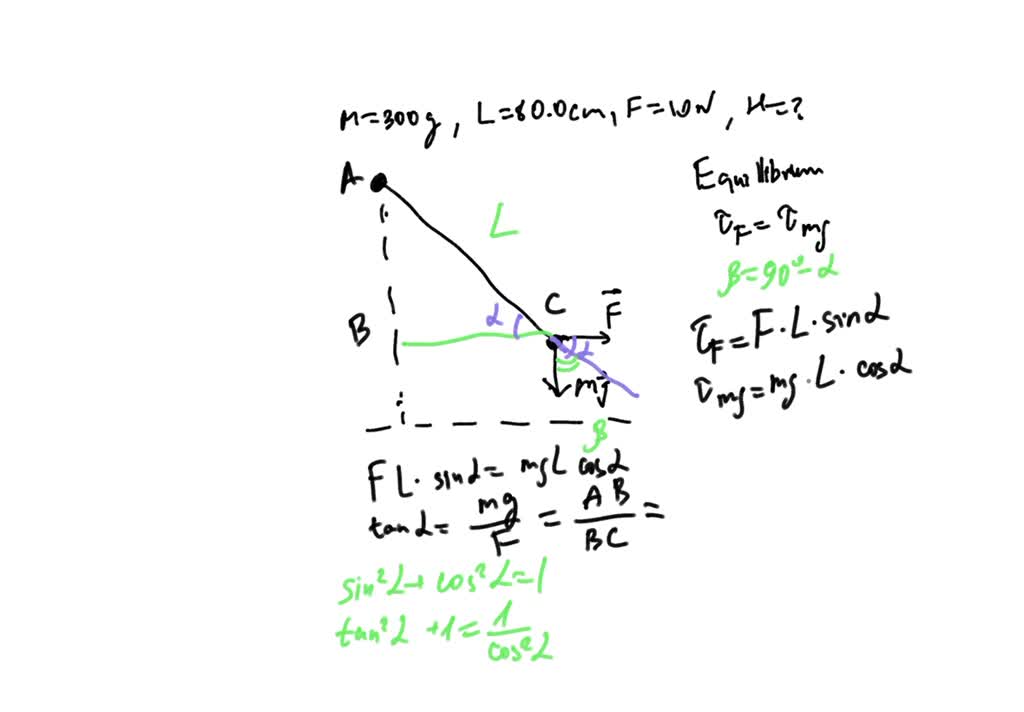 M=300g, L=80.0cm, F=10N, H=?
Equilibrium
A
τF = τmg
L
β=90°-α
C
F
α
B
τF = F·L·sinα
α
mg
τmg = mg·L·cosα
β
FL·sinα = mgL cosα
tanα = mg/F = AB/BC =
sin²α + cos²α = 1
tan²α + 1 = 1/cos²α